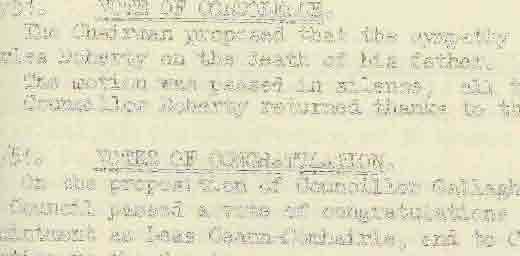 VOTE OF CONDOLENCE.
The Chairman proposed that the sympathy
rles Doherty on the death of his father.
The motion was passed in silence, all
Councillor Doherty returned thanks to
VOTES OF CONGRATULATION.
On the proposition of Councillor Gallagh
Council passed a vote of congratulations
ointment as Leas Ceann-Comhairle, and to C